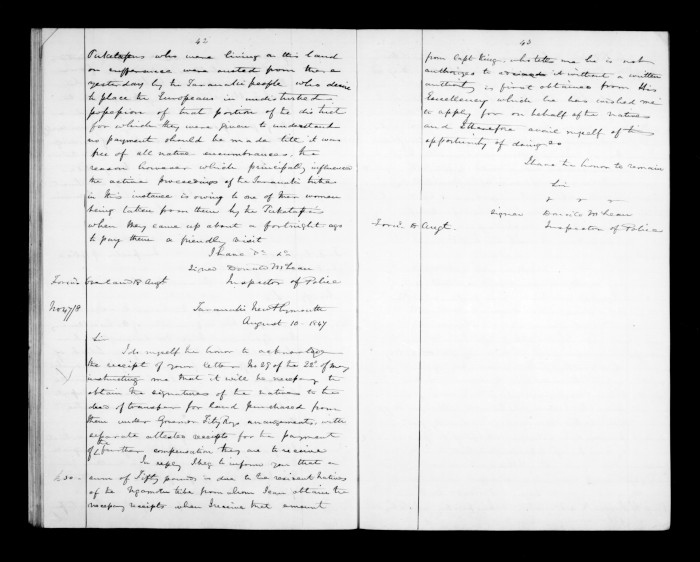 42
Puketapus who were living on this land
on sufferance were ousted from there
yesterday by the Taranaki people who desire
to place the Europeans in undisturbed
possession of that portion of the district
for which they were given to understand
no payment should be made till it was
free of all native encumbrances, the
reason however which principally influenced
the active proceedings of the Taranaki tribes
in this instance is owing to one of their women
being taken from them by the Puketapus
when they came up about a fortnight ago
to pay them a friendly visit
I have &c &c
Signed Donald McLean
Inspector of Police
Overland 18 Augt
No 47/18
Taranaki New Plymouth
August 10 - 1847
Sir
I do myself the honor to acknowledge
the receipt of your letter No 29 of the 22d of May
instructing me that it will be necessary to
obtain the signatures of the natives to the
deed of transfer for land purchased from
them under Governor FitzRoys arrangements, with
separate attested receipts for the payment
of the further compensation they are to receive
In reply I beg to inform you that a
sum of Fifty pounds is due to the resident natives
£50 -
of the Ngamotu tribe from whom I can obtain the
necessary receipts when I receive that amount
43
from Capt King, who tells me he is not
authorized to it without a written
authority is first obtained from His
Excellency which he has wished me
to apply for on behalf of the natives
and I therefore avail myself of the
opportunity of doing so
I have the honor to remain
Sir
Signed Donald McLean
Inspector of Police
Augt.